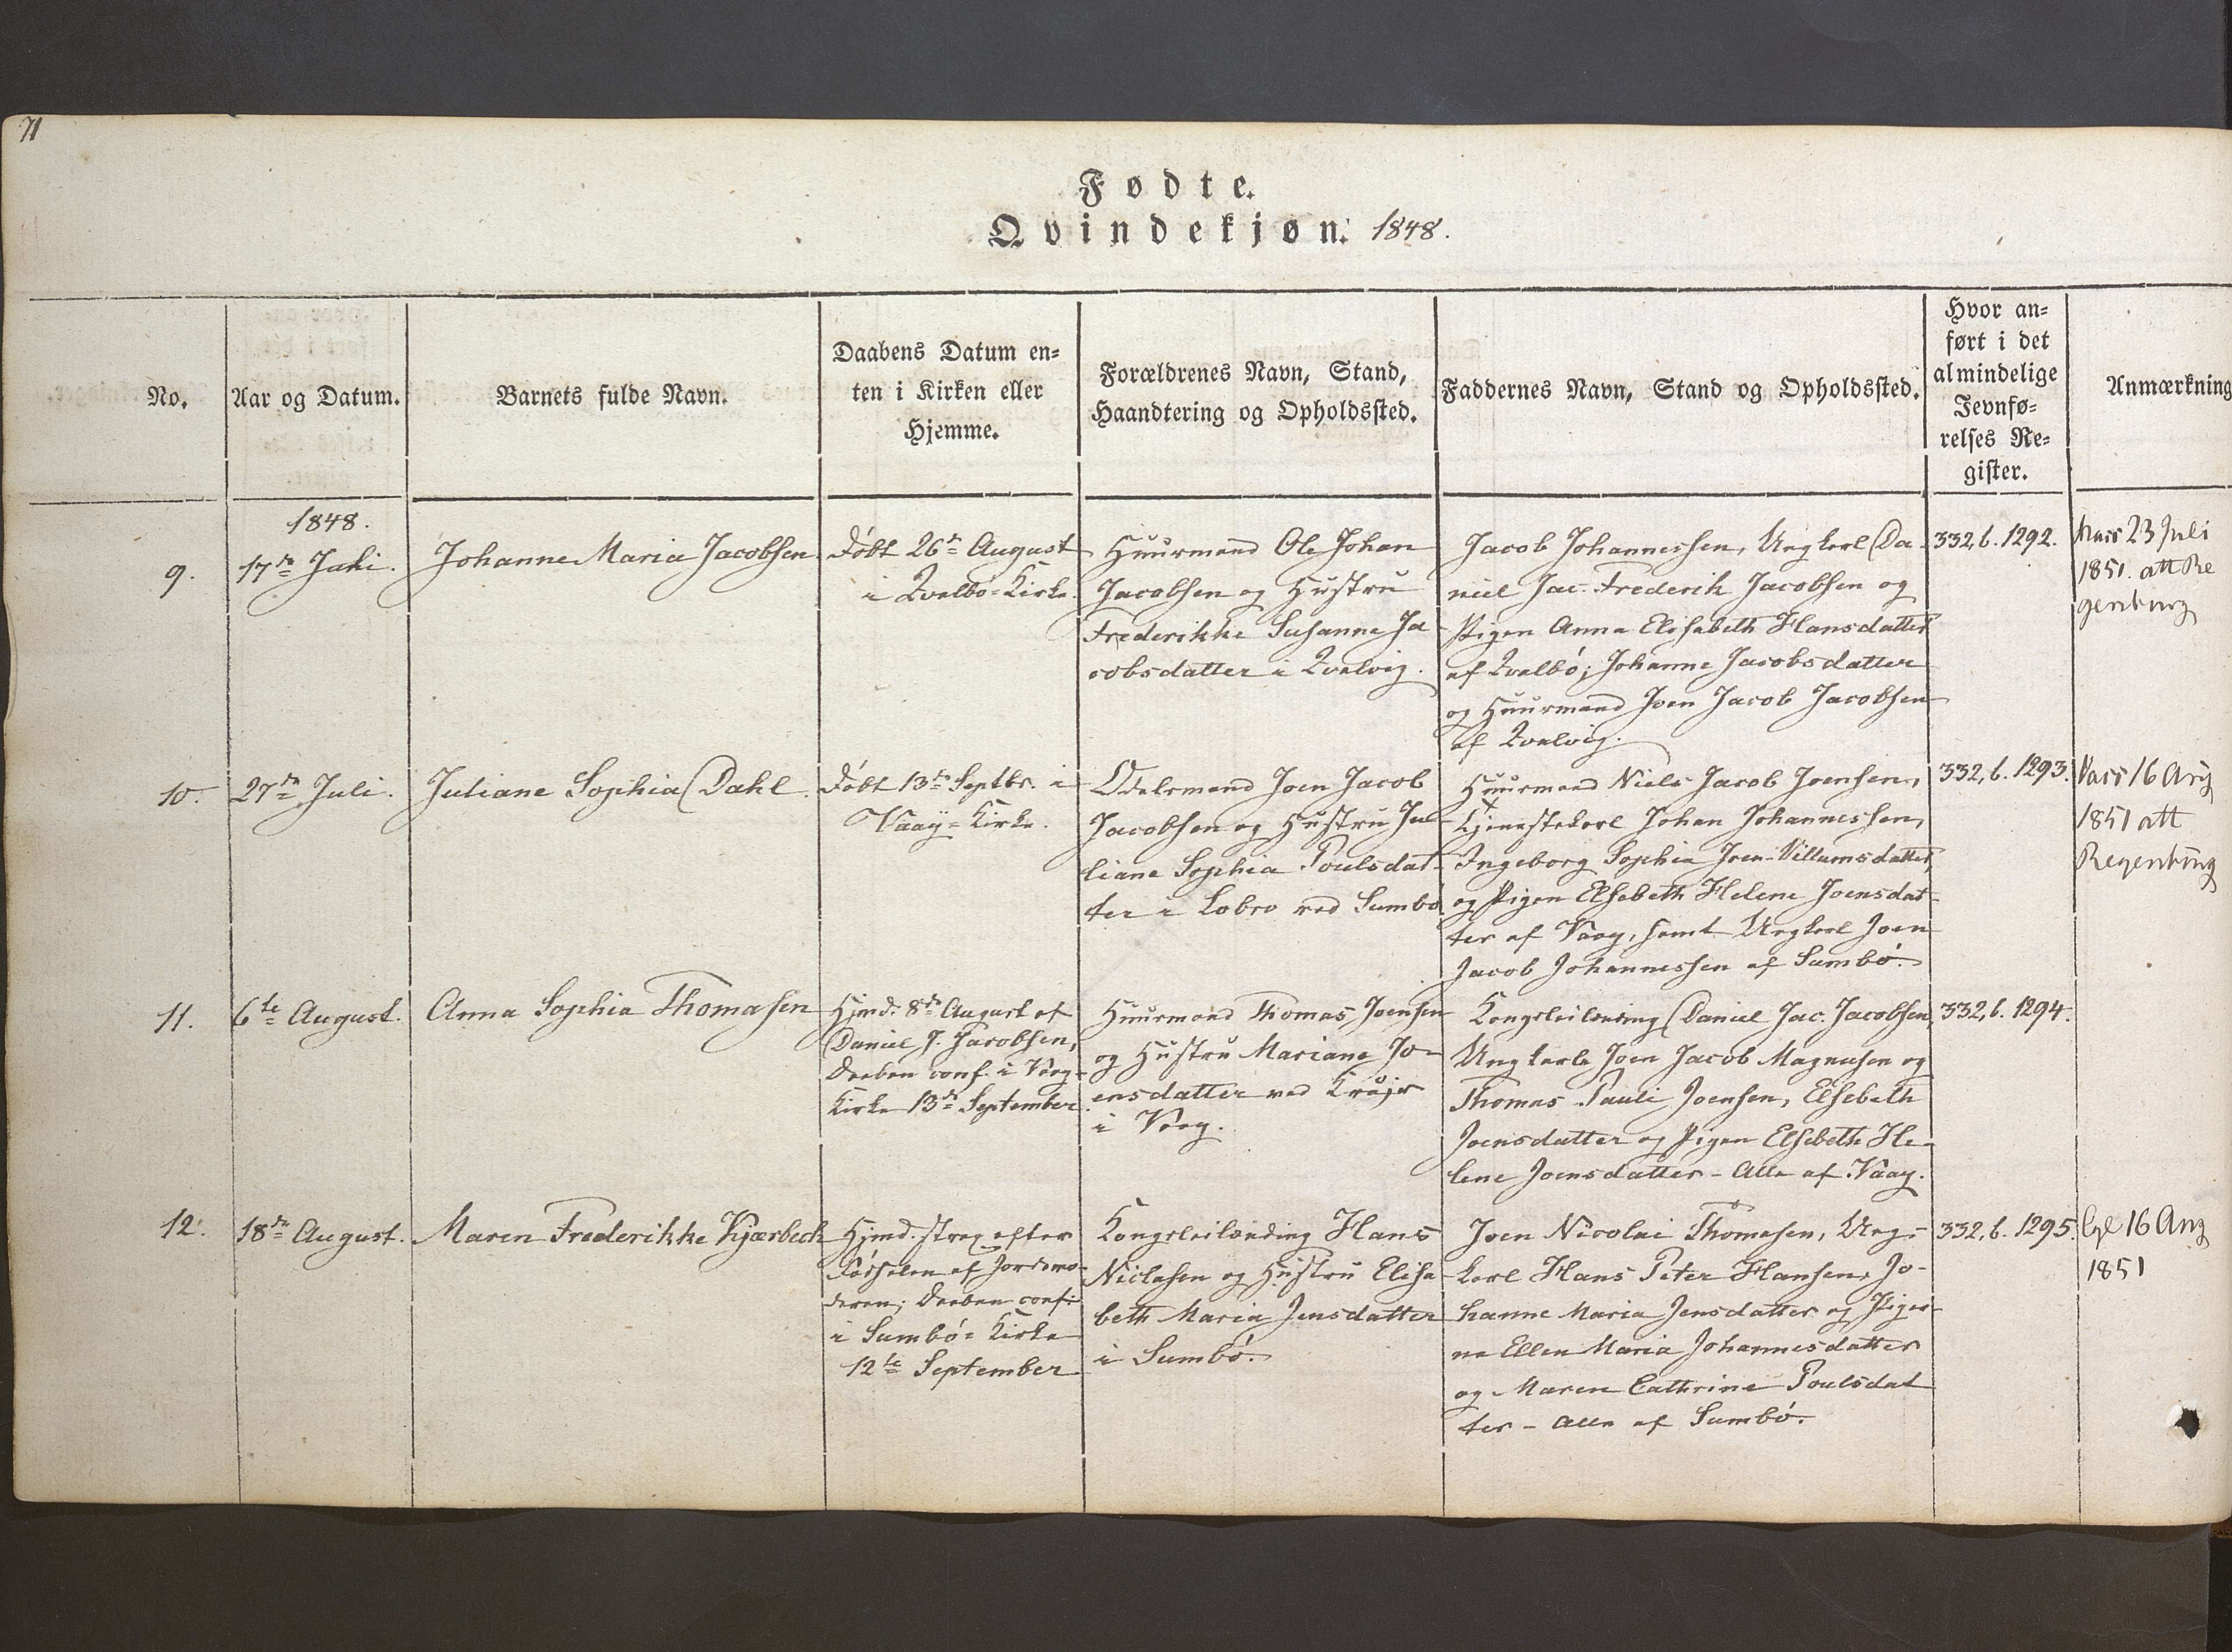 71
Fødte.
Qvindekjøn. 1848.
No.
Aar og Datum.
Barnets fulde Navn.
Daabens Datum en-
ten i Kirken eller
Hjemme.
Forældrenes Navn, Stand,
Haandtering og Opholdssted.
Faddernes Navn, Stand og Opholdssted.
Hvor an-
ført i det
almindelige
Jevnfø-
relses Re-
gister.
Anmærkning
9.
1848.
17de Juli.
Johanne Maria Jacobsen
Døbt 26de August
i Qvalbø-Kirke.
Huusmand Ole Johan
Jacobsen og Hustru
Frederikke Susanne Ja
cobsdatter i Qvalvig.
Jacob Johannessen, Ungkarl Da-
niel Jac. Frederik Jacobsen og
Pigen Anna Elisabeth Hansdatter
af Qvalbø; Johanne Jacobsdatter
og Huusmand Joen Jacob Jacobsen
af Qvalvig.
332, b. 1292.
Vacc 23 Juli
1851 att
10.
27de Juli.
Juliane Sophia Dahl.
Døbt 13de Septbr. i
Vaag-Kirke.
Odelsmand Joen Jacob
Jacobsen og Hustru Ju-
liane Sophia Poulsdat-
ter i Lobro ved Sumbø
Huusmand Niels Jacob Joensen,
Tjenestekarl Johan Johannessen,
Ingeborg Sophia Joen-Villumsdatter,
og Pigen Elsebeth Helene Joensdat-
ter af Vaag, samt Ungkarl Joen
Jacob Johannessen af Sumbø.
332, b. 1293.
Vacc 16 Aug
1851 att
11.
6te August.
Anna Sophia Thomasen
Hjmd. 8de August af
Daniel J. Jacobsen,
Daaben conf. i Vaag-
Kirke 13de September
Huusmand Thomas Joensen
og Hustru Mariane Jo-
ensdatter ved
i Vaag.
Kongsleilænding Daniel Jac. Jacobsen,
Ungkarle Joen Jacob Magnusen og
Thomas Pauli Joensen, Elsebeth
Joensdatter og Pigen Elsebeth He-
lene Joensdatter - Alle af Vaag.
332, b. 1294.
12.
18de August.
Maren Frederikke Kjærbeck
Hjmd. strax efter
Fødselen af Jordemo-
deren; Daaben conf.
i Sumbø-Kirke
12te September
Kongsleilænding Hans
Niclasen og Hustru Elisa
beth Maria Jensdatter
i Sumbø.
Joen Nicolai Thomasen, Ung-
karl Hans Peter Hansen, Jo-
hanne Maria Jensdatter og Piger-
ne Ellen Maria Johannesdatter
og Maren Cathrine Poulsdat
ter - Alle af Sumbø.
332, b. 1295.
16 Aug
1851